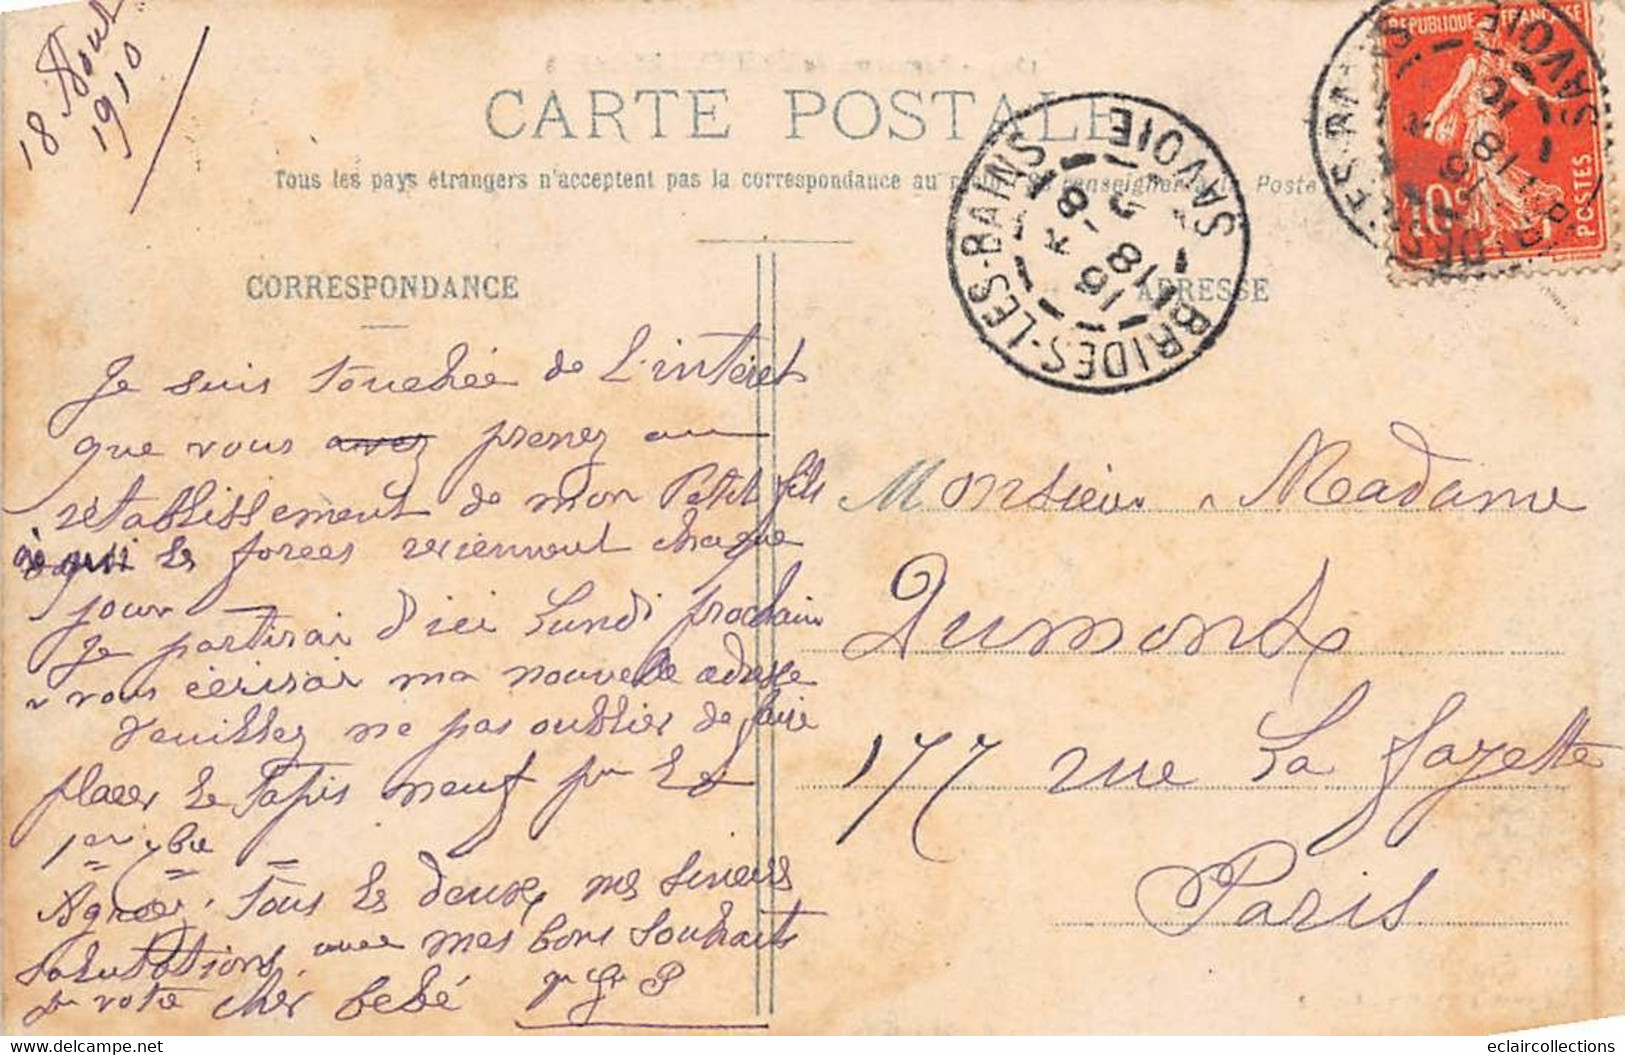 18 Aout
1910
CARTE POSTALE
Tous les pays étrangers n'acceptent pas la correspondance au
renseigner Poste
REPUBLIQUE FRANÇAISE
10c
POSTES
BRIDES-LES-BAINS
SAVOIE
18-8
BRIDES-LES-BAINS
SAVOIE
CORRESPONDANCE
ADRESSE
Je suis touchée de L'intéret
que vous avez prenez au
rétablissement de mon Petit fils
à qui les forces reviennent chaque
jour
Je partirai d'ici Lundi prochain
vous écrirai ma nouvelle adresse
Veuillez ne pas oublier de faire
placer le Tapis neuf pr le
1er 7bre
Agréez, Tous les deux, mes sincères
salutations, avec mes bons souhaits
pr votre cher bébé
Monsieur Madame
Dumont
177 rue La fayette
Paris
www.delcampe.net
eclaircollections